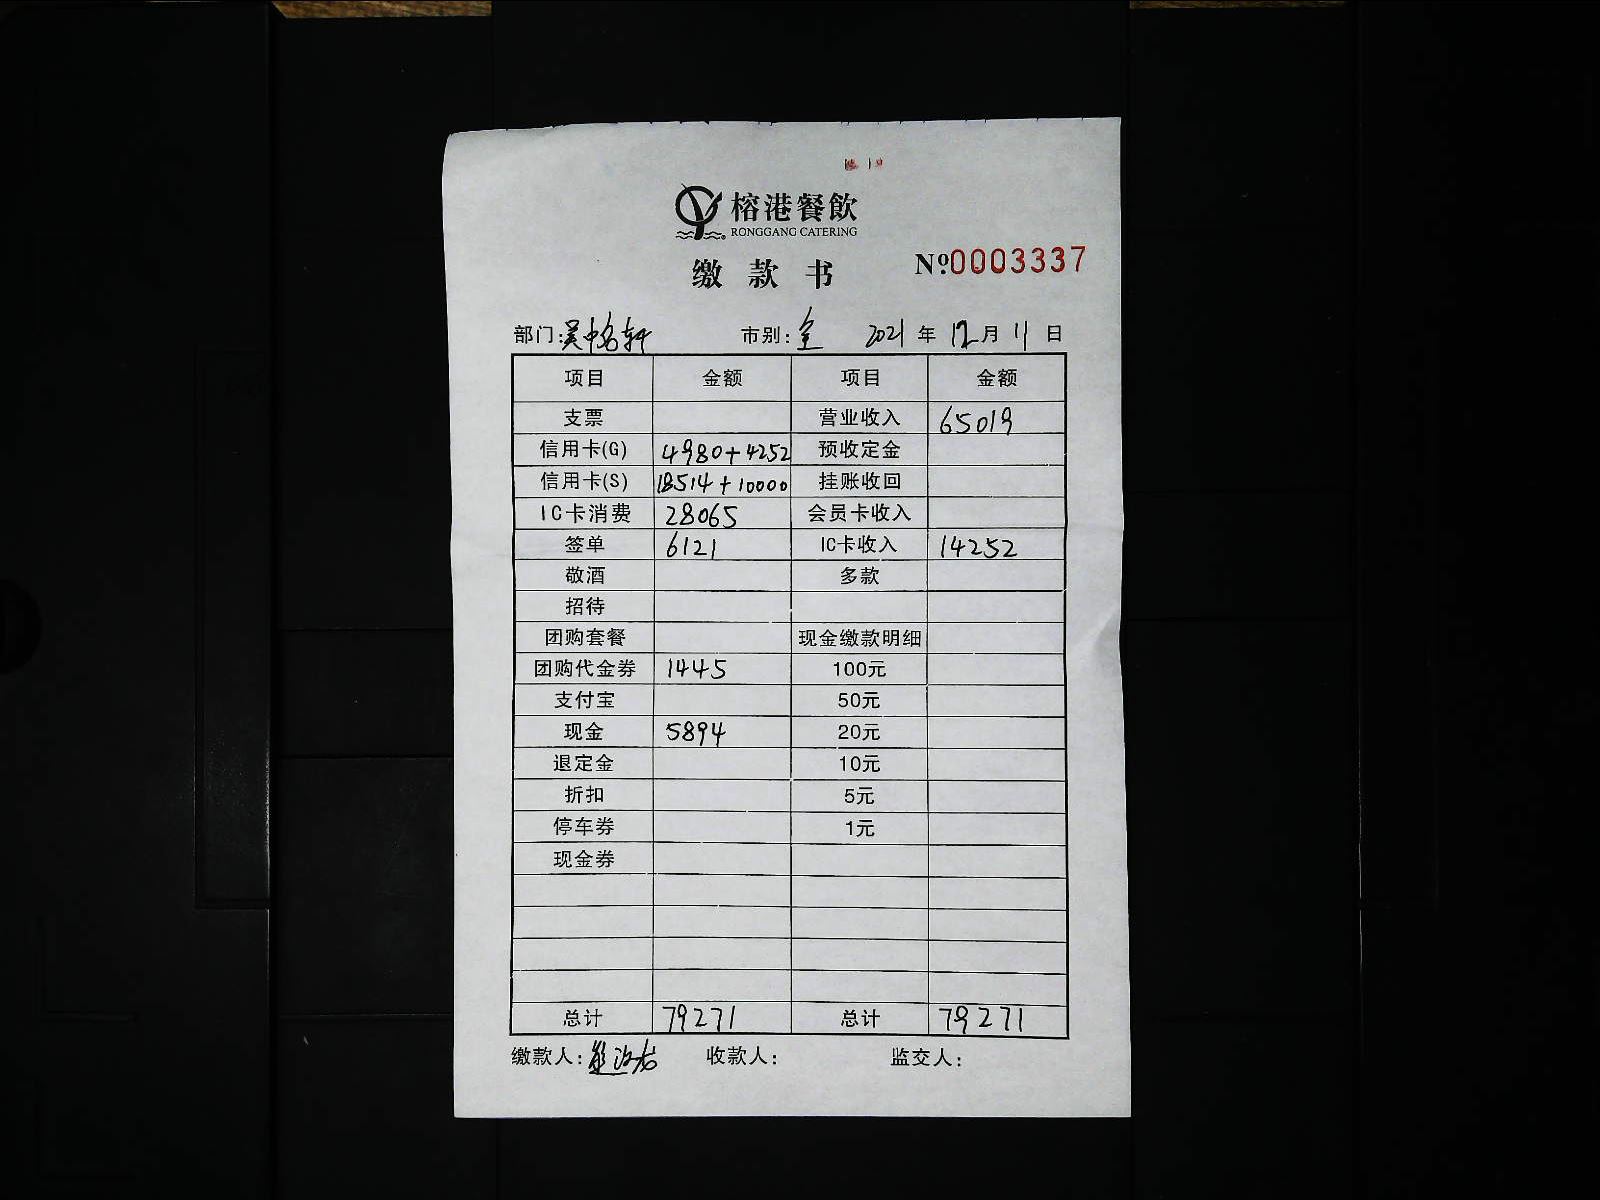 榕港餐飲
RONGGANG CATERING
缴款书 Nº0003337
部门:吴中名轩 市别:全 2021年12月11日
项目 金额 项目 金额
支票 营业收入 65019
信用卡(G) 4980+4252 预收定金
信用卡(S) 18514+10000 挂账收回
IC卡消费 28065 会员卡收入
签单 6121 IC卡收入 14252
敬酒 多款
招待
团购套餐 现金缴款明细
团购代金券 1445 100元
支付宝 50元
现金 5894 20元
退定金 10元
折扣 5元
停车券 1元
现金券
总计 79271 总计 79271
缴款人: 收款人: 监交人: